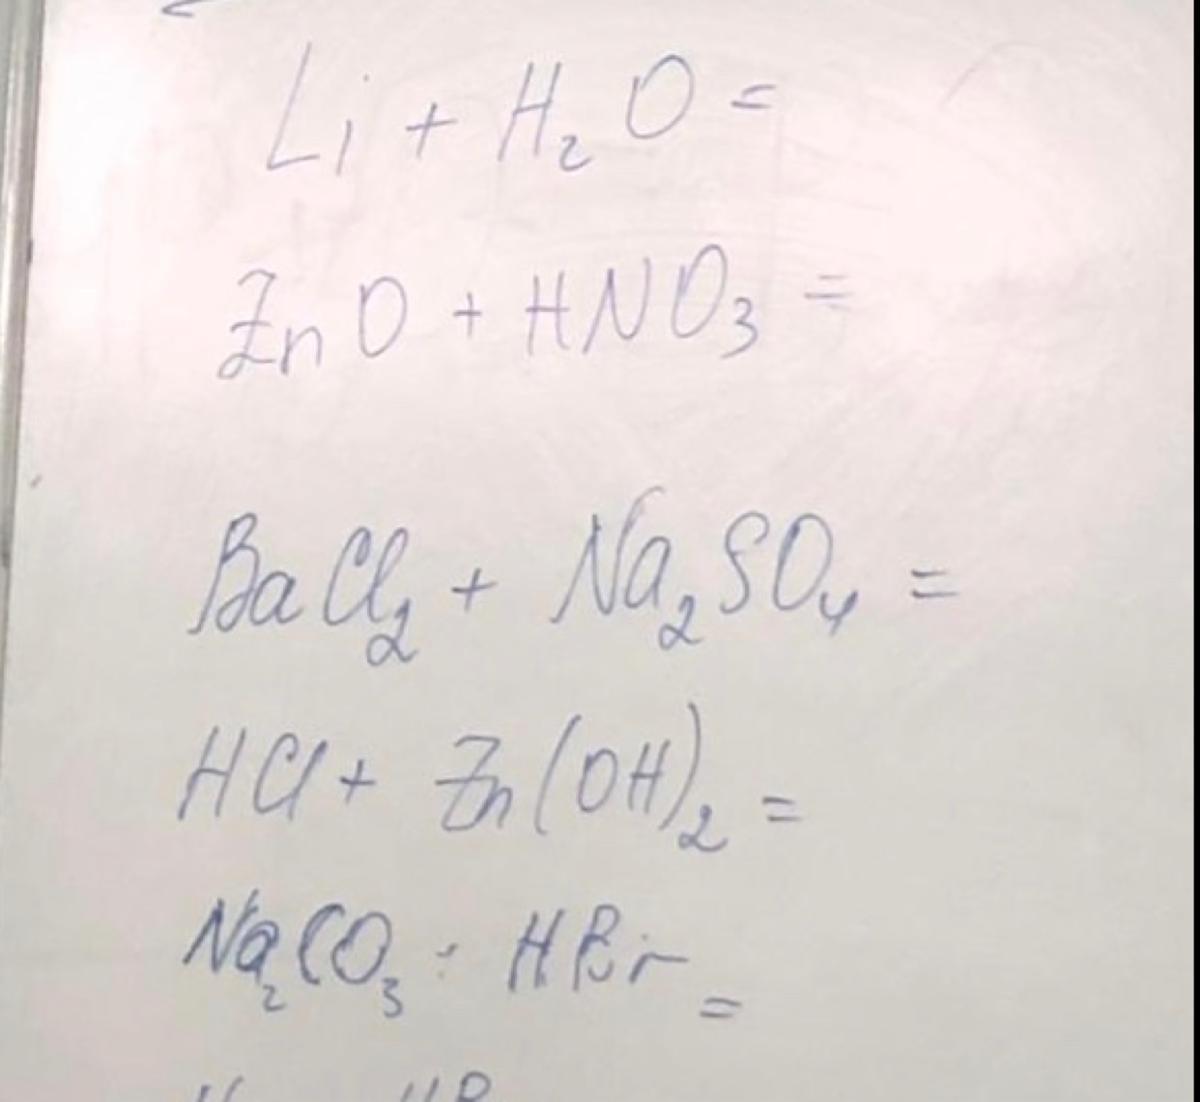 Li + H₂O =
ZnO + HNO₃ =
BaCl₂ + Na₂SO₄ =
HCl + Zn(OH)₂ =
Na₂CO₃ + HBr =